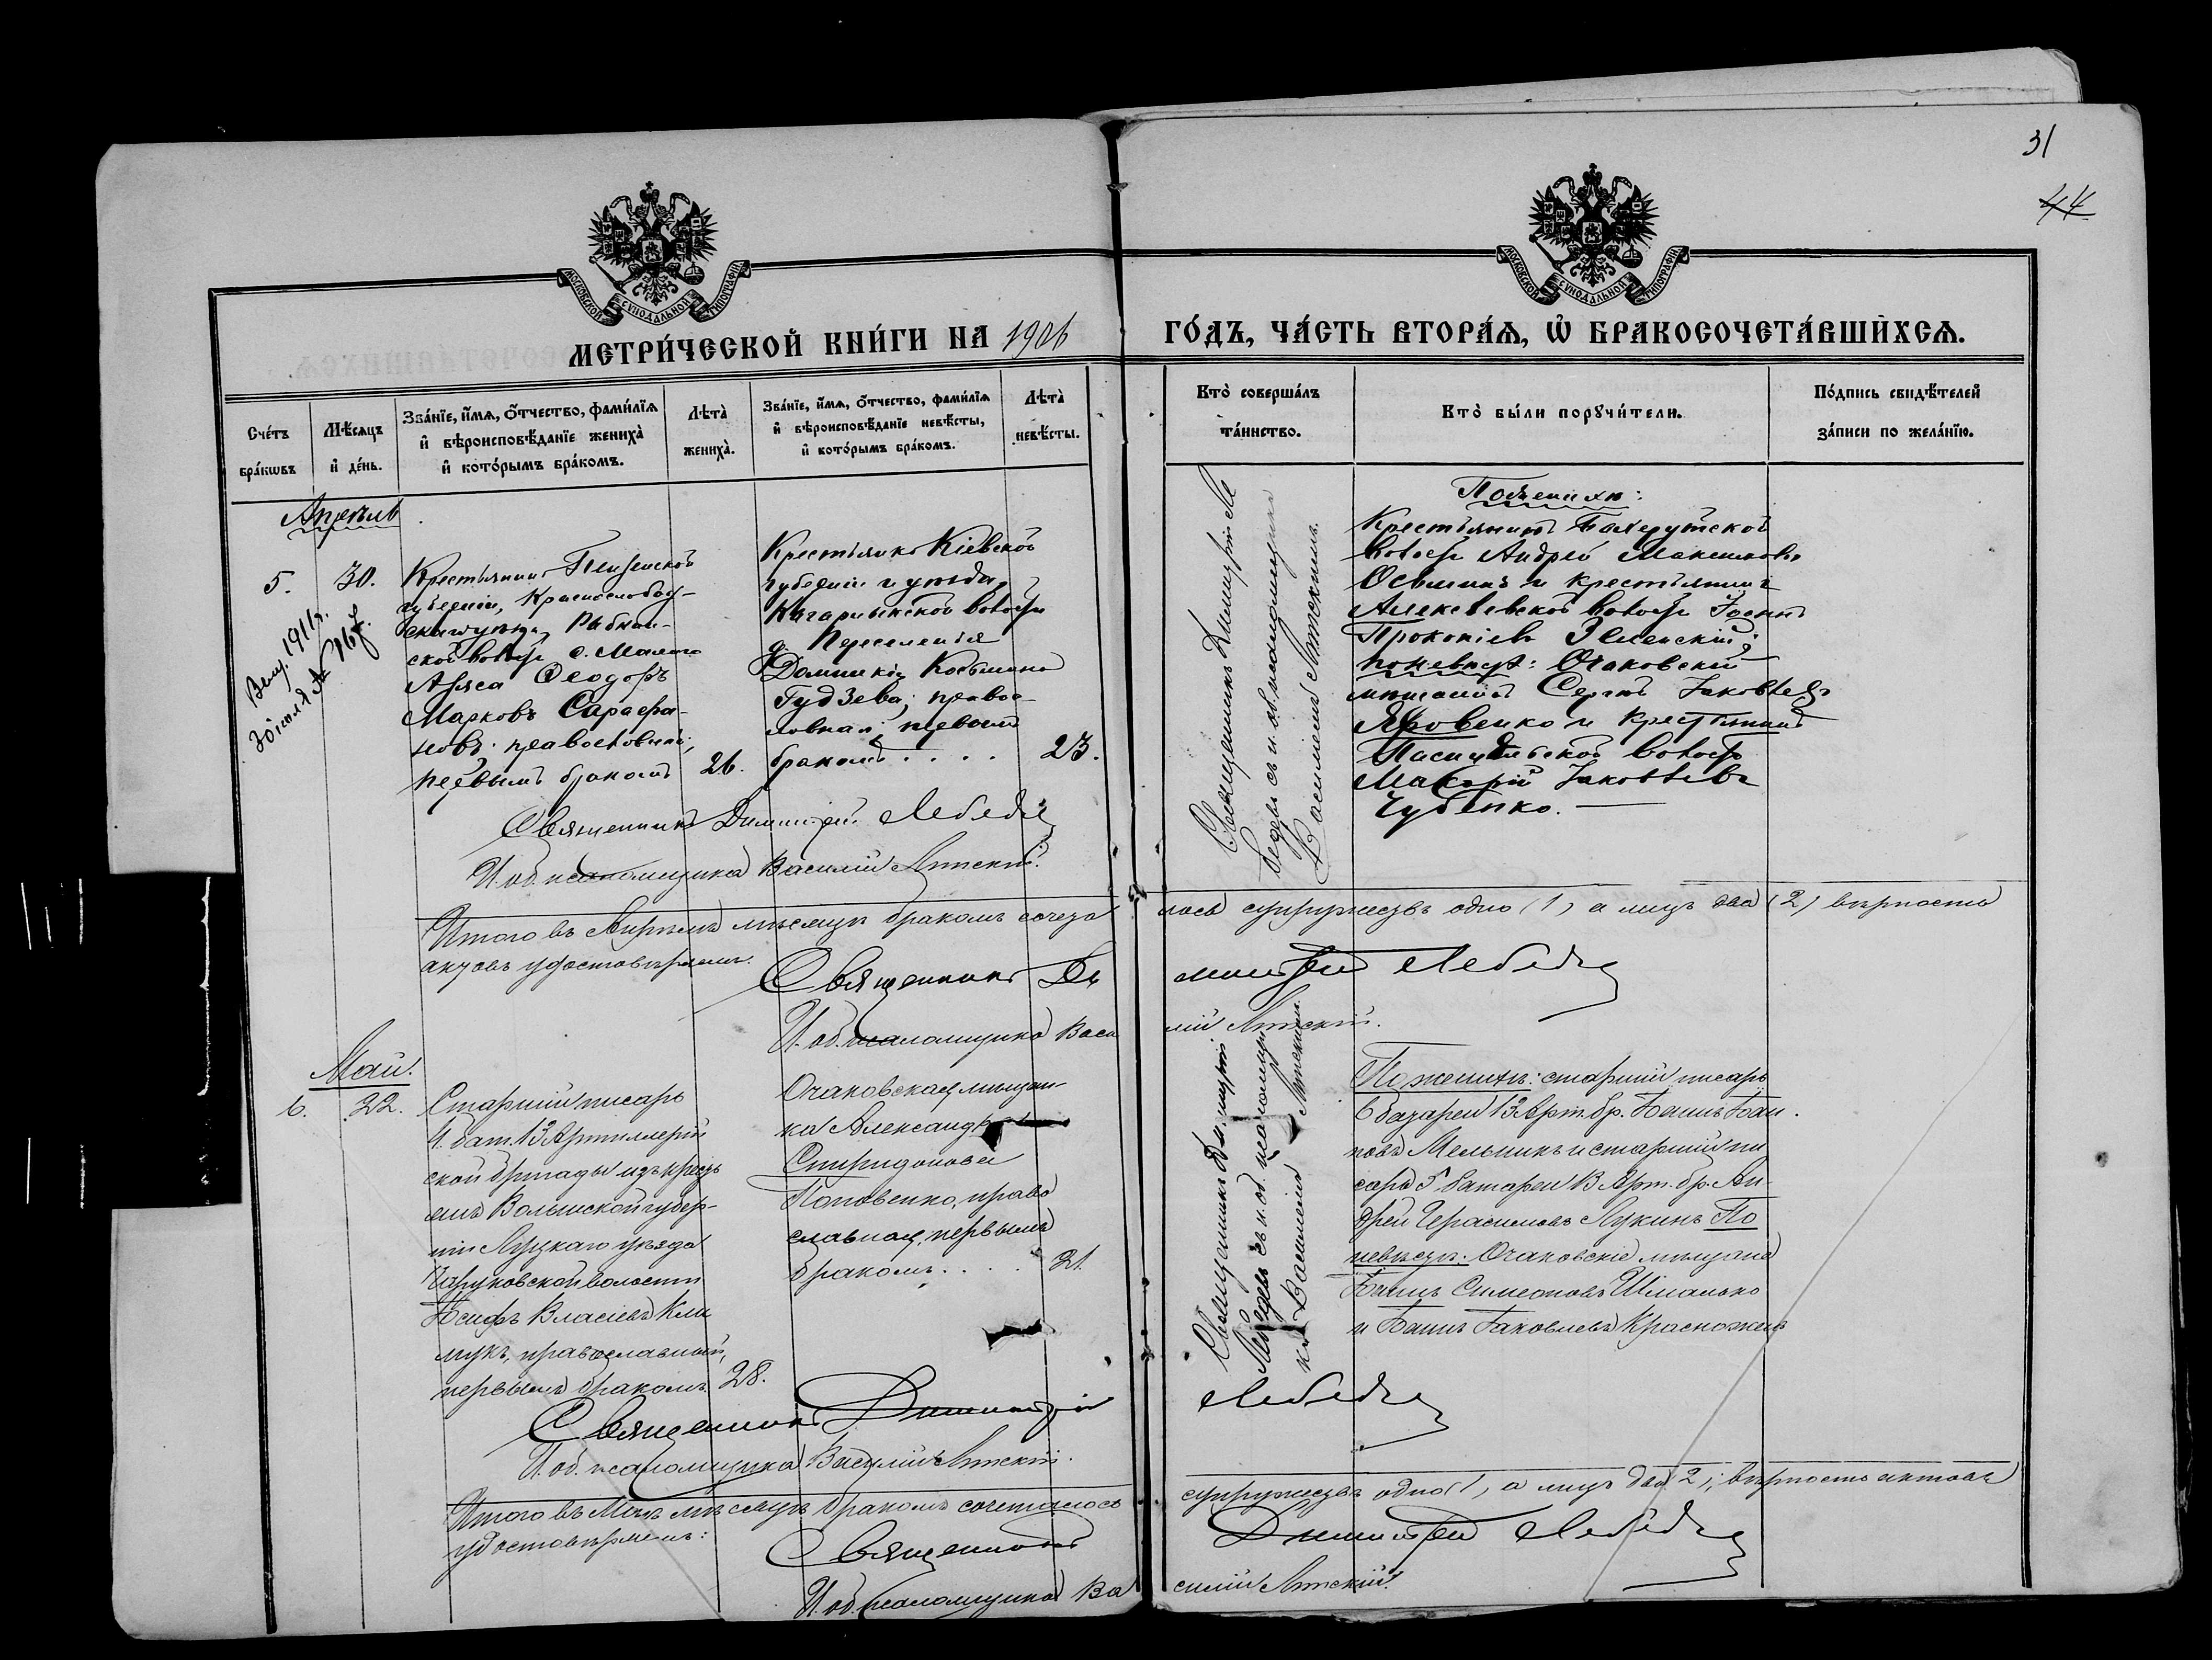 31
44
МОСКОВСКОЙ СѴНОДАЛЬНОЙ ТИПОГРАФІИ
МОСКОВСКОЙ СѴНОДАЛЬНОЙ ТИПОГРАФІИ
МЕТРИ́ЧЕСКОЙ КНИ́ГИ НА 1906
ГО́ДЪ, ЧА́СТЬ ВТОРА́Ѧ, Ѡ҆ БРАКОСОЧЕТА́ВШИХСѦ.
Сче́тъ
бра́кѡвъ
Мѣ́сѧцъ
и҆ де́нь.
Зва́нїе, и҆́мѧ, ѻ҆́тчество, фами́лїѧ
и҆ вѣроисповѣ́данїе жениха̀
и҆ кото́рымъ бра́комъ.
Лѣта̀
жениха̀.
Зва́нїе, и҆́мѧ, ѻ҆́тчество, фами́лїѧ
и҆ вѣроисповѣ́данїе невѣ́сты,
и҆ кото́рымъ бра́комъ.
Лѣта̀
невѣ́сты.
Кто̀ соверша́лъ
та́инство.
Кто̀ бы́ли порꙋчи́тели.
По́дпись свидѣ́телей
за́писи по жела́нїю.
Апрѣль
5.
30.
Выд. 1911 г.
30 іюля №
Крестьянинъ Пензенской
губерніи, Краснослобод-
скаго уѣзда, Рыбкин-
ской волости с. Малаго
Азяса Ѳеодоръ
Марковъ Сарафа-
новъ православный,
первымъ бракомъ
26.
Крестьянка Кіевской
губерніи и уѣзда,
Кагарлыкской волости
д. Переселенія
Домникія Косьмина
Гудзева, правос-
лавная, первымъ
бракомъ . . . .
23.
Священникъ Димитрій Ле
бедевъ съ и. об. псаломщика
Василіемъ Лятскимъ.
По женихѣ:
Крестьянинъ
волости Андрей Максимовъ
Осьминъ и крестьянинъ
Алексѣевской волости Іоаннъ
Прокопіевъ Зеленскій;
по невѣстѣ: Очаковскій
мѣщанинъ Сергѣй Іаковлевъ
Яровенко и крестьянинъ
волости
Іаковлевъ
Чубенко.
Священникъ Димитрій Лебедевъ
И. об. псаломщика Василій Лятскій.
Итого въ Апрѣлѣ мѣсяцѣ бракомъ сочета
лось супружествъ одно (1) а лицъ два (2) вѣрность
актовъ удостовѣряемъ.
Священникъ Ди
митрій Лебедевъ
И. об. псаломщика Васи
лій Лятскій.
Май.
6.
22.
Старшій писарь
4. бат. 13 Артиллерій
ской бригады изъ крестъ
янъ Волынской губер-
ніи Луцкаго уѣзда
Чаруковской волости
Іосифъ Власіевъ Кли
мукъ, православный,
первымъ бракомъ.
28.
Очаковская мѣщан
ка Александра
Спиридонова
Поповенко, право
славная, первымъ
бракомъ. . . .
21.
Священникъ Димитрій
Лебедевъ съ и. об. псаломщи
ка Василіемъ Лятскимъ.
По женихѣ: старшій писарь
6 батареи 13 Арт. бр. Іоаннъ Іоан
новъ Мельникъ и старшій пи
сарь 5 батареи 13 Арт. бр. Ан-
дрей Герасимовъ Лукинъ По
невѣстѣ: Очаковскіе мѣщане
Іоаннъ Симеоновъ Шмалько
и Іоаннъ Іаковлевъ Красножонъ
Священникъ Димитрій
Лебедевъ
И. об. псаломщика Василій Лятскій.
Итого въ Маѣ мѣсяцѣ бракомъ сочеталось
супружествъ одно (1), а лицъ два (2); вѣрность актовъ
удостовѣряемъ:
Священникъ
Димитрій Лебедевъ
И. об. псаломщика Ва
силій Лятскій.